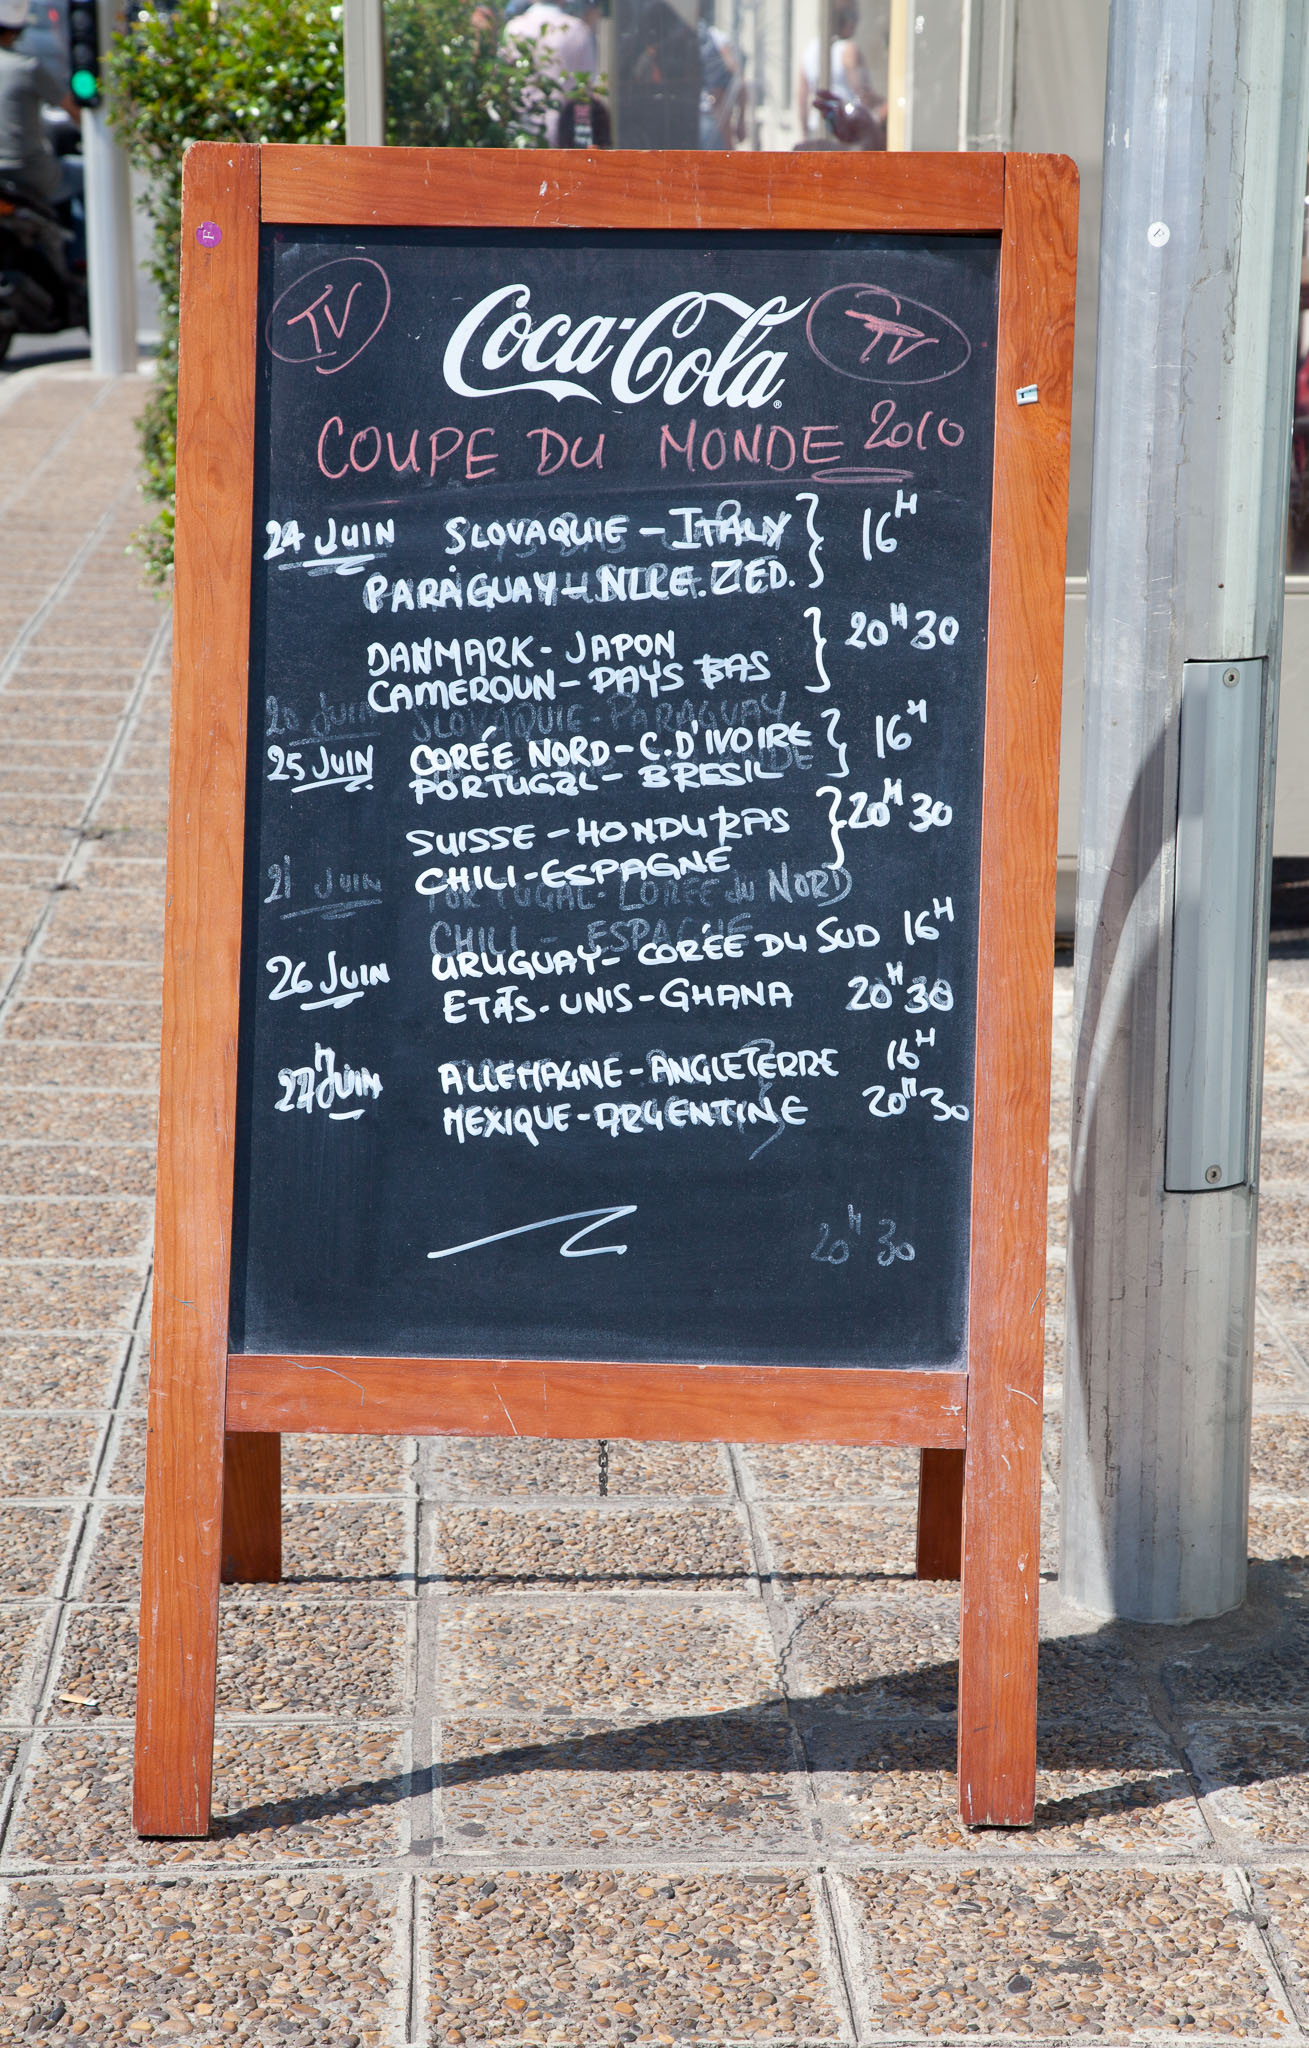 TV Coca-Cola ® TV
COUPE DU MONDE 2010
24 JUIN SLOVAQUIE - ITALY } 16H
PARAGUAY - NLLE. ZED.
DANMARK - JAPON } 20H30
CAMEROUN - PAYS BAS
20 JUIN SLOVAQUIE - PARAGUAY
25 JUIN CORÉE NORD - C. D'IVOIRE } 16H
PORTUGAL - BRESIL
SUISSE - HONDURAS } 20H30
CHILI - ESPAGNE
21 JUIN PORTUGAL - CORÉE du NORD
CHILI - ESPAGNE
26 JUIN URUGUAY - CORÉE DU SUD 16H
ETATS-UNIS - GHANA 20H30
27 JUIN ALLEMAGNE - ANGLETERRE 16H
MEXIQUE - ARGENTINE 20H30
20H30